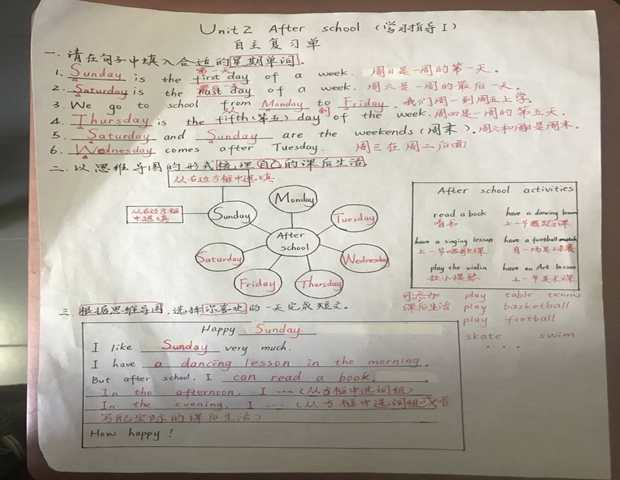 Unit 2 After school (学习指导 I)
自主复习单
一. 请在句子中填入合适的星期单词.
第一天
1. Sunday is the first day of a week. 周日是一周的第一天。
2. Saturday is the last day of a week. 周六是一周的最后一天。
3. We go to school from Monday to Friday. 我们周一到周五上学。
从 到
4. Thursday is the fifth (第五) day of the week. 周四是一周的第五天。
5. Saturday and Sunday are the weekends (周末). 周六和周日是周末。
6. Wednesday comes after Tuesday. 周三在周二后面
二. 以思维导图的形式梳理自己的课后生活
从右边方框中选填
从右边方框中选填
Sunday
Monday
Tuesday
Wednesday
Thursday
Friday
Saturday
After school
After school activities
read a book have a dancing lesson
看书 上一节舞蹈课
have a singing lesson have a football match
上一节唱歌课 有一场足球赛
play the violin have an Art lesson
拉小提琴 上一节美术课
可添加 play table tennis
课后生活 play basketball
play football
skate swim
. . .
三. 根据思维导图, 选择你喜欢的一天完成短文.
Happy Sunday
I like Sunday very much.
I have a dancing lesson in the morning.
But after school, I can read a book.
In the afternoon, I ... (从方框中选词组)
In the evening, I ... (从方框中选词组或者
写自己实际的课后生活)
How happy!